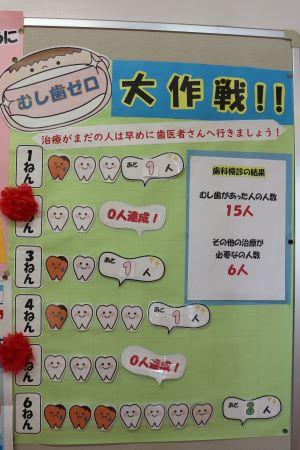 めに
むし歯ゼロ
大作戦!!
治療がまだの人は早めに歯医者さんへ行きましょう!
1ねん
あと 1人
歯科検診の結果
むし歯があった人の人数
15人
その他の治療が
必要な人数
6人
ねん
0人達成!
3ねん
あと 1人
4ねん
あと 1人
ねん
0人達成!
6ねん
あと 3人